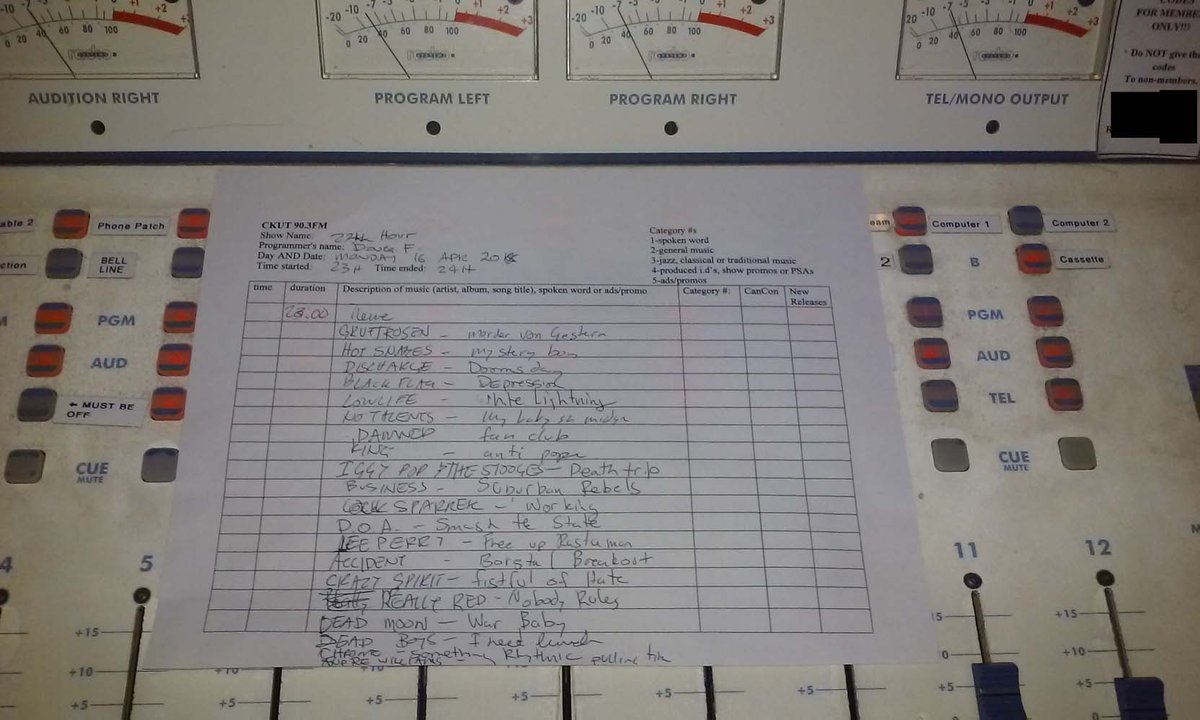 -20 -10 -7 -5 -3 0 +1 +2 +3
0 20 40 60 80 100
AUDITION RIGHT
PROGRAM LEFT
PROGRAM RIGHT
TEL/MONO OUTPUT
CODES
FOR MEMBE
ONLY!!!
* Do NOT give the
codes
To non-members.
able 2
Phone Patch
ction
BELL
LINE
PGM
AUD
← MUST BE
OFF
CUE
MUTE
4
5
+15
+10
+5
CKUT 90.3FM
Show Name: Hour
Programmer's name: Doug F.
Day AND Date: Monday 16 Apr 2018
Time started: 23H Time ended: 24H
Category #s
1-spoken word
2-general music
3-jazz, classical or traditional music
4-produced i.d's, show promos or PSAs
5-ads/promos
time duration Description of music (artist, album, song title), spoken word or ads/promo Category #: CanCon New Releases
23.00
GRUFTROSEN - morder von Gestern
HOT SNAKES - mystery boy
DISCHARGE - Doomsday
BLACK FLAG - Depression
LOWLIFE - Nite Lightning
NO TALENTS - My baby
DAMNED fan club
KING - anti pope
IGGY POP & THE STOOGES - Death trip
BUSINESS - Suburban Rebels
COCK SPARRER - Working
D.O.A. - Smash te State
LEE PERRY - Free up Rastaman
ACCIDENT - Borstal Breakout
CRAZY SPIRIT - fistful of Hate
REALLY RED - Nobody Rules
DEAD MOON - War Baby
DEAD BOYS - I need lunch
CHROME - something Rhythmic
ANDRE WILLIAMS - pulling
eam
Computer 1
Computer 2
2
B
Cassette
PGM
AUD
TEL
CUE
MUTE
11
12
+15
+10
+5